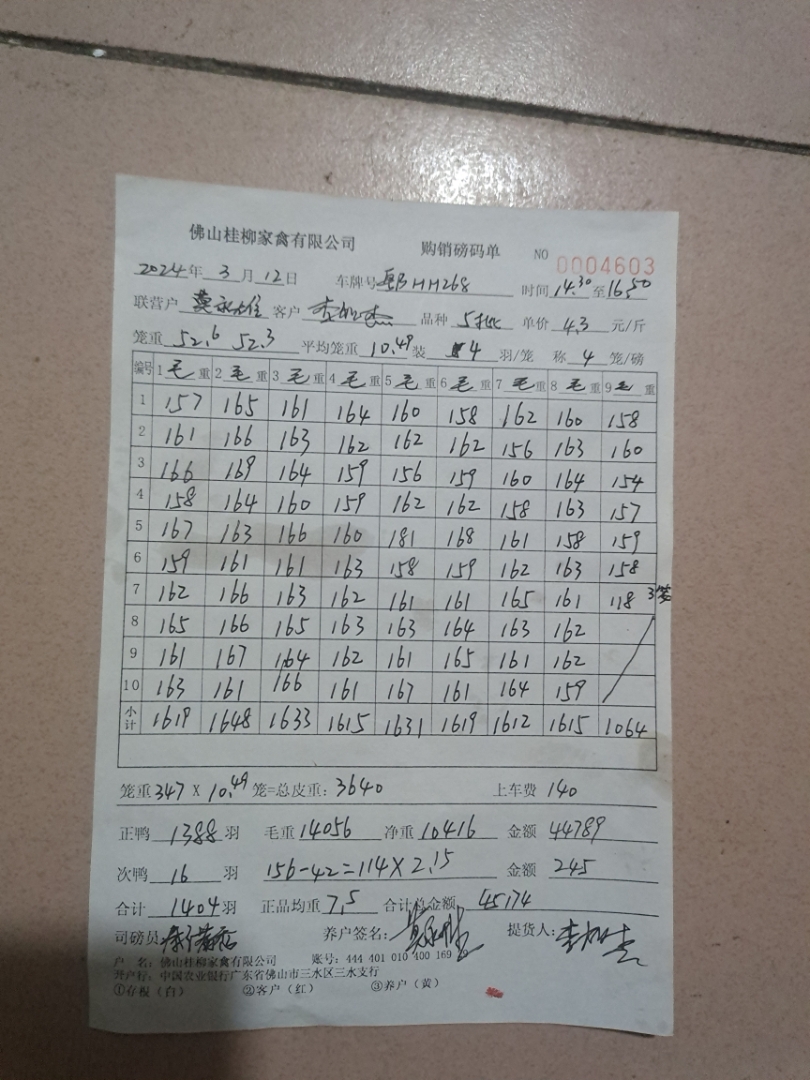 佛山桂柳家禽有限公司 购销磅码单 NO 0004603
2024年 3 月 12 日 车牌号 HH268 时间 14.30 至 16.50
联营户 客户 品种 5批 单价 4.3 元/斤
笼重 52.6 52.3 平均笼重 10.49 装 4 羽/笼 称 4 笼/磅
编号 1 毛 重 2 毛 重 3 毛 重 4 毛 重 5 毛 重 6 毛 重 7 毛 重 8 毛 重 9 毛 重
1 157 165 161 164 160 158 162 160 158
2 161 166 163 162 162 162 156 163 160
3 166 169 164 159 156 159 160 164 154
4 158 164 160 159 162 162 158 163 157
5 167 163 166 160 181 168 161 158 159
6 159 161 161 163 158 159 162 163 158
7 162 166 163 162 161 161 165 161 118 3笼
8 165 166 165 163 163 164 163 162
9 161 167 164 162 161 165 161 162
10 163 161 166 161 167 161 164 159
小计 1619 1648 1633 1615 1631 1619 1612 1615 1064
笼重 347 X 10.49 笼=总皮重: 3640 上车费 140
正鸭 1388 羽 毛重 14056 净重 10416 金额 44789
次鸭 16 羽 156-42=114X2.15 金额 245
合计 1404 羽 正品均重 7.5 合计总金额 45174
司磅员: 养户签名: 提货人:
户 名: 佛山桂柳家禽有限公司 账号: 444 401 010 400 169
开户行: 中国农业银行广东省佛山市三水区三水支行
①存根(白) ②客户(红) ③养户(黄)